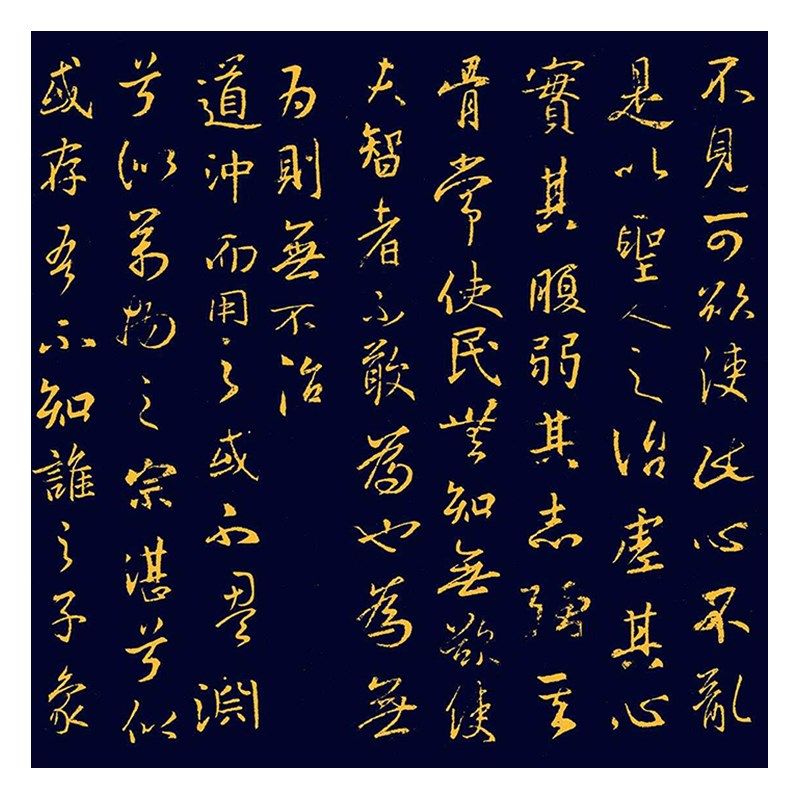 不見可欲使民心不亂
是以聖人之治虛其心
實其腹弱其志強其
骨常使民無知無欲使
夫智者不敢為也為無
為則無不治
道沖而用之或不盈淵
兮似萬物之宗湛兮似
或存吾不知誰之子象